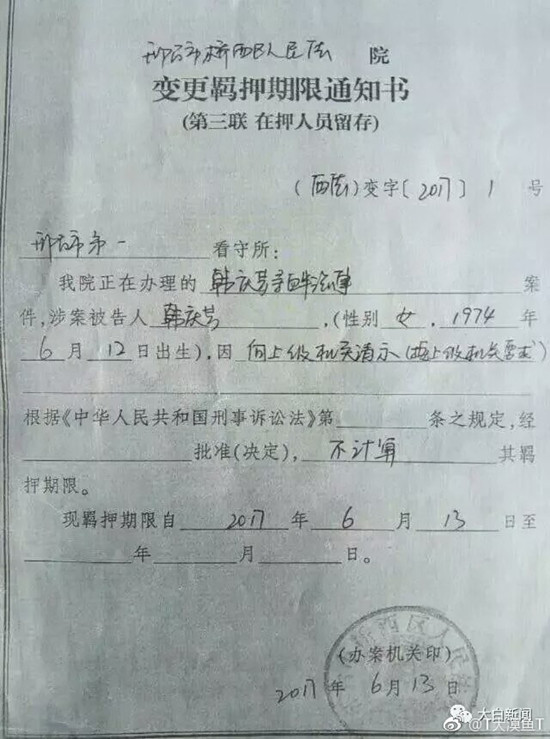 邢台市桥西区人民法 院
变更羁押期限通知书
(第三联 在押人员留存)
(西法)变字[2017] 1 号
邢台市第一 看守所:
我院正在办理的 韩庆芳等 案
件,涉案被告人 韩庆芳 ,(性别 女 , 1974 年
6 月 12 日出生),因 向上级机关请示(按上级机关要求)
根据《中华人民共和国刑事诉讼法》第 条之规定,经
批准(决定), 不计算 其羁
押期限。
现羁押期限自 2017 年 6 月 13 日至
年 月 日。
桥西区人民
(办案机关印)
2017 年 6 月 13 日
大白新闻
@T大漠鱼T